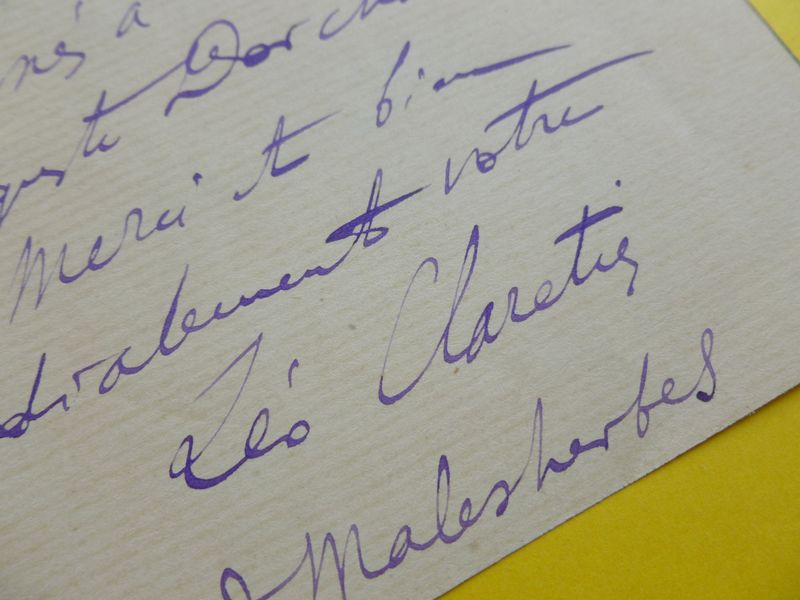 nés à
guste Dorch
Merci et bien
dialement votre
Léo Claretie
Malesherbes